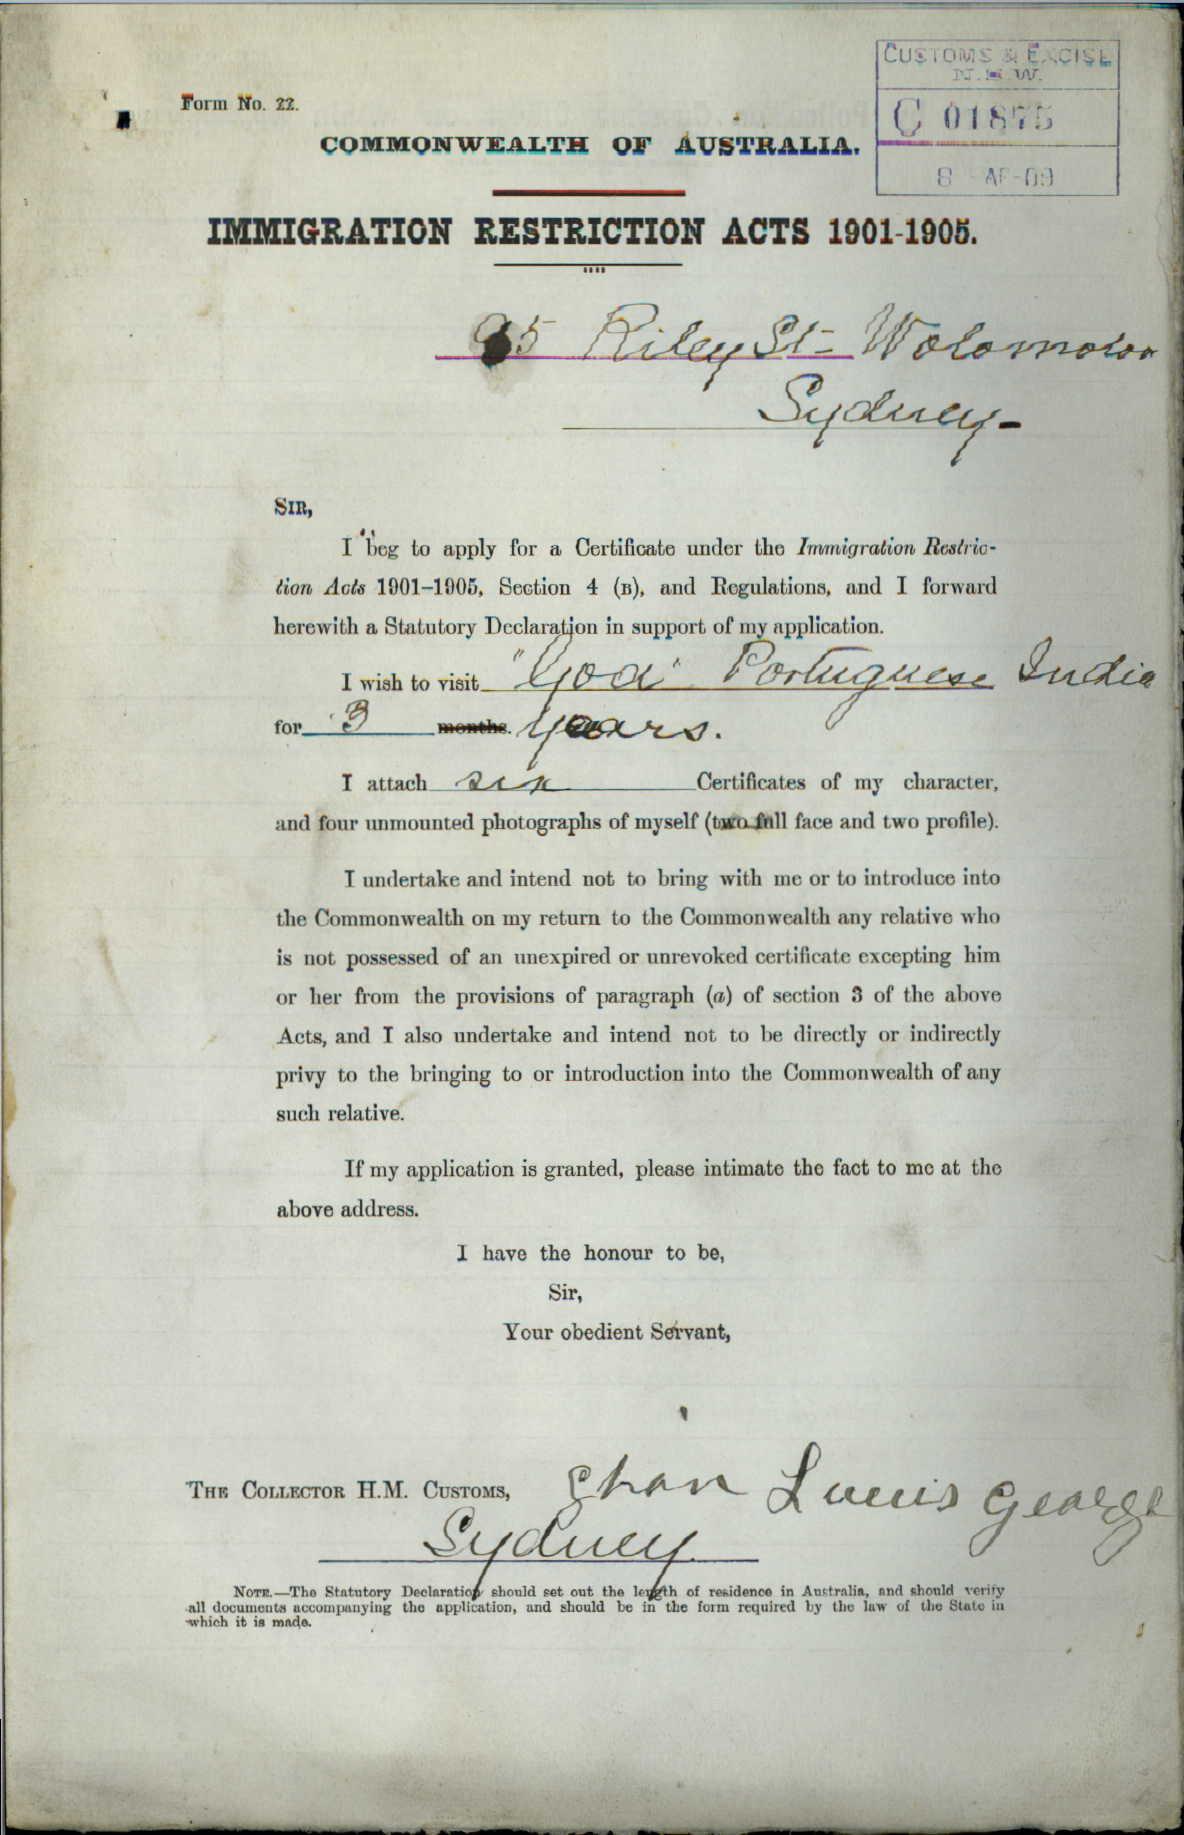 Form No. 22.
CUSTOMS & EXCISE
N.S.W.
C 01875
8 - AP - 09
COMMONWEALTH OF AUSTRALIA.
IMMIGRATION RESTRICTION ACTS 1901-1905.
95 Riley St- Wolomoloo
Sydney-
SIR,
I beg to apply for a Certificate under the Immigration Restric-
tion Acts 1901-1905, Section 4 (B), and Regulations, and I forward
herewith a Statutory Declaration in support of my application.
I wish to visit "Goa" Portuguese India
for 3 months. years.
I attach six Certificates of my character,
and four unmounted photographs of myself (two full face and two profile).
I undertake and intend not to bring with me or to introduce into
the Commonwealth on my return to the Commonwealth any relative who
is not possessed of an unexpired or unrevoked certificate excepting him
or her from the provisions of paragraph (a) of section 3 of the above
Acts, and I also undertake and intend not to be directly or indirectly
privy to the bringing to or introduction into the Commonwealth of any
such relative.
If my application is granted, please intimate the fact to me at the
above address.
I have the honour to be,
Sir,
Your obedient Servant,
THE COLLECTOR H.M. CUSTOMS, Louis George
Sydney
NOTE.—The Statutory Declaration should set out the length of residence in Australia, and should verify
all documents accompanying the application, and should be in the form required by the law of the State in
which it is made.